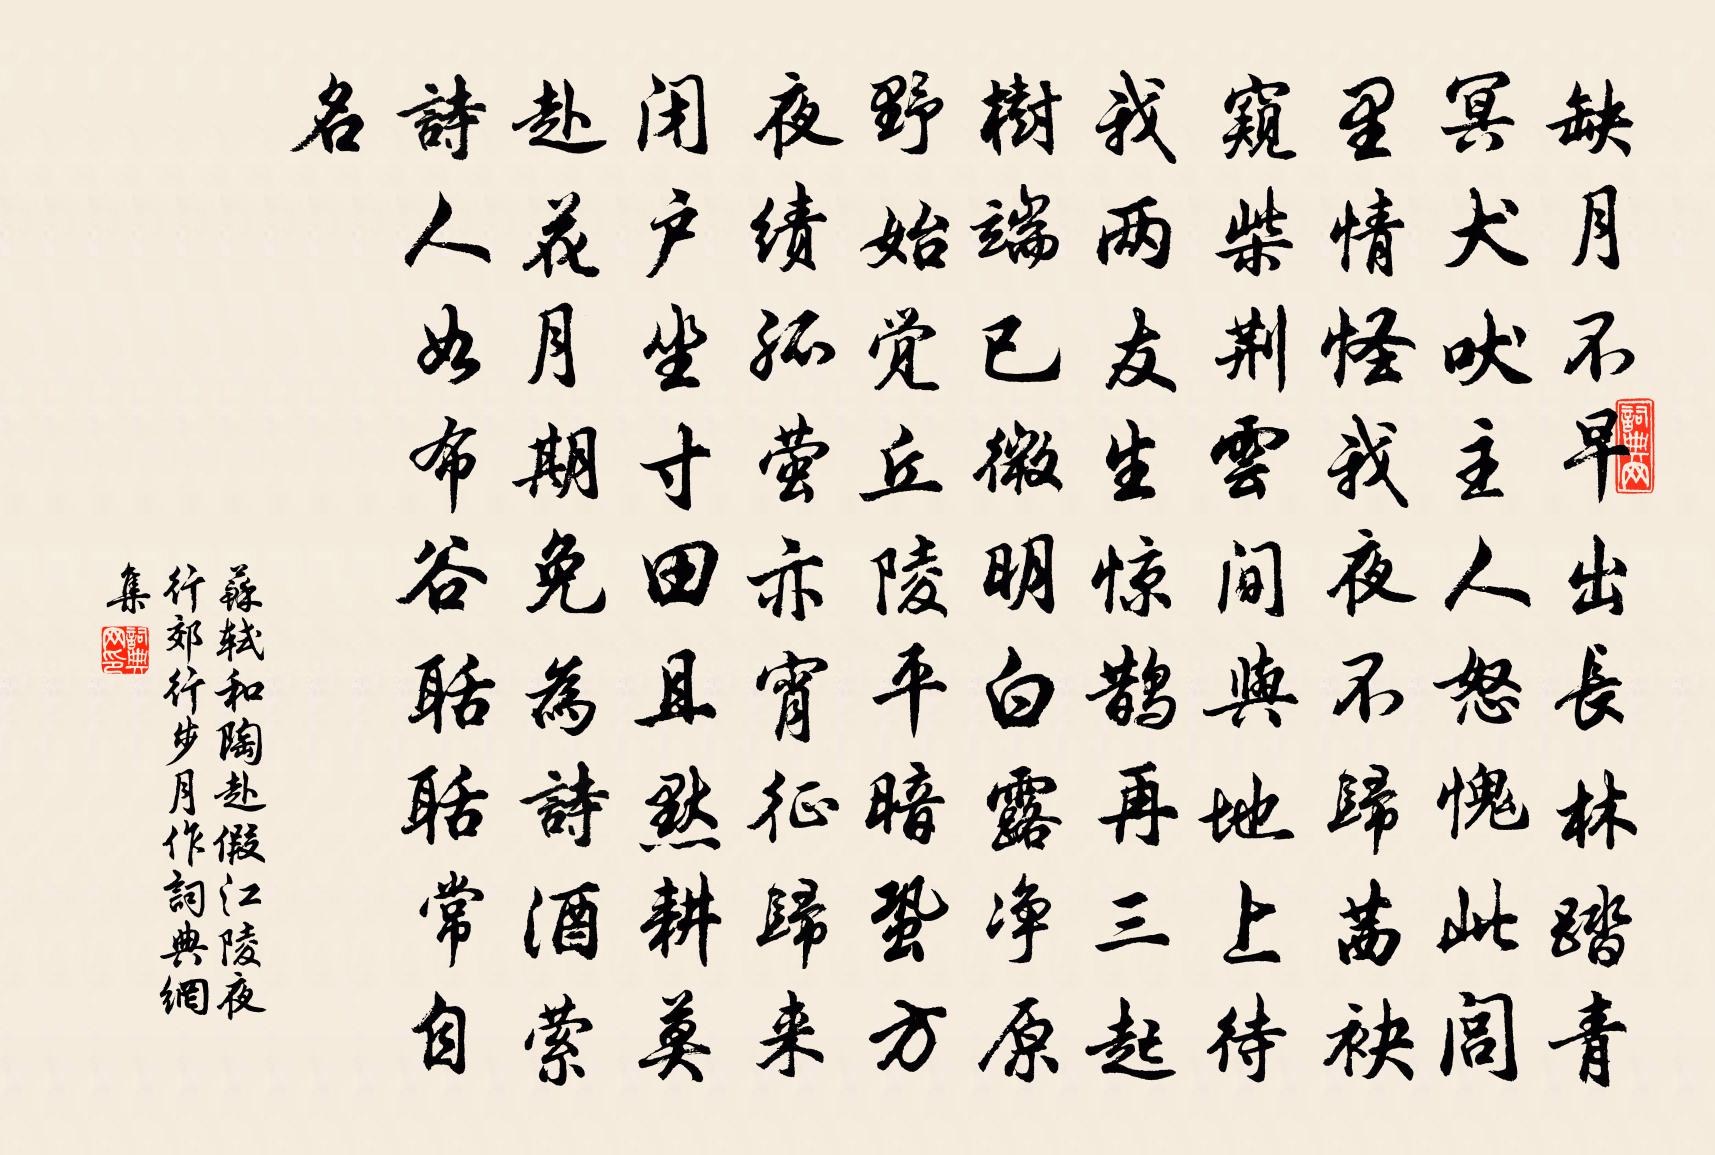 缺月不早出長林踏青
冥犬吠主人怒愧此閭
里情怪我夜不歸茜袂
窺柴荆雲間與地上待
我两友生惊鵲再三起
樹端已微明白露净原
野始觉丘陵平暗蛩方
夜绩孤萤亦宵征歸来
闭户坐寸田且默耕莫
赴花月期免為詩酒萦
詩人如布谷聒聒常自
名
蘇轼和陶赴假江陵夜
行郊行步月作詞典網
集
詞典网
詞典网印